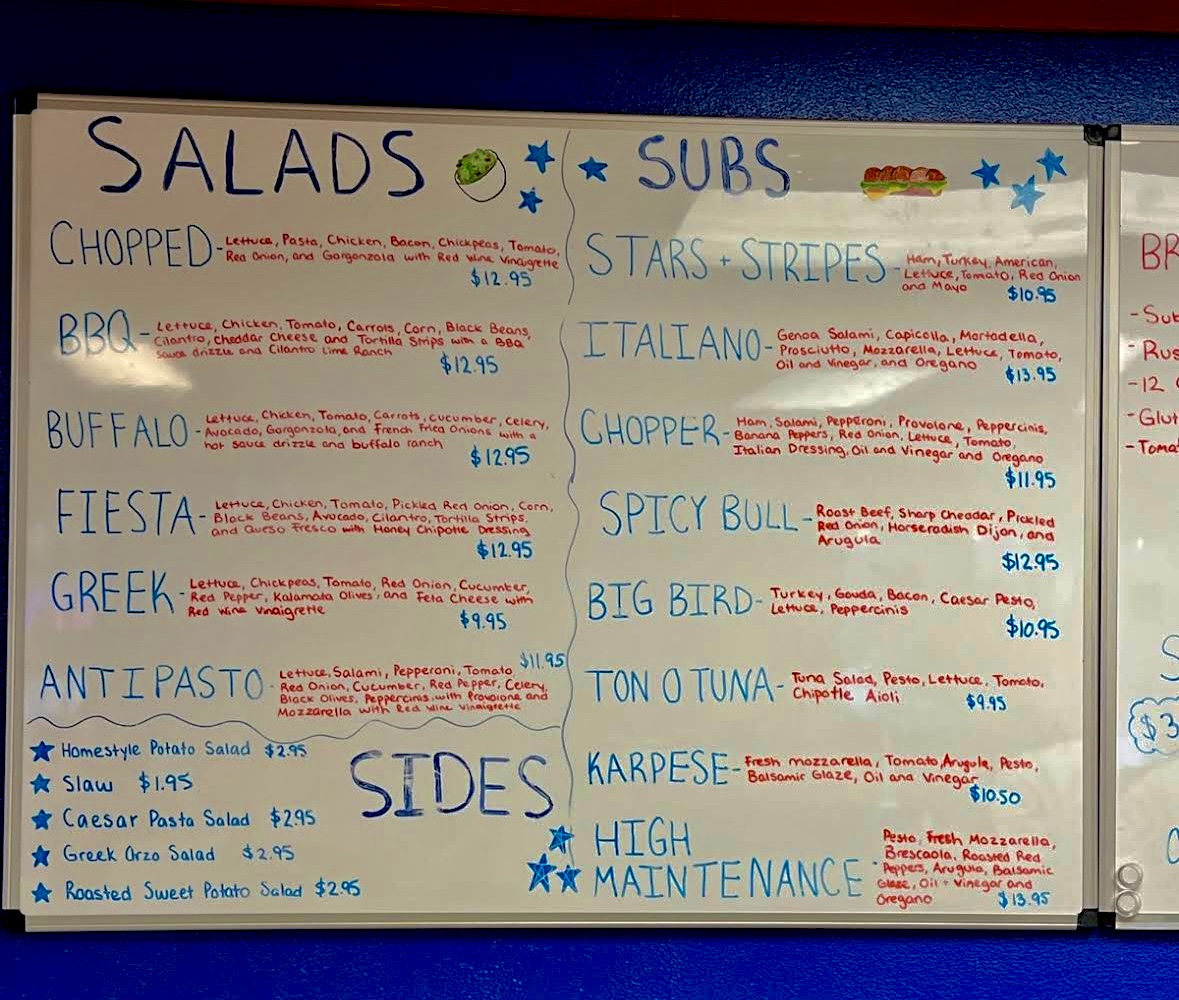 SALADS
CHOPPED - Lettuce, Pasta, Chicken, Bacon, Chickpeas, Tomato,
Red Onion, and Gorgonzola with Red Wine Vinaigrette
$12.95
BBQ - Lettuce, Chicken, Tomato, Carrots, Corn, Black Beans,
Cilantro, Cheddar Cheese and Tortilla Strips with a BBQ
Sauce drizzle and Cilantro Lime Ranch
$12.95
BUFFALO - Lettuce, Chicken, Tomato, Carrots, cucumber, Celery,
Avocado, Gorgonzola, and French Fried Onions with a
hot sauce drizzle and buffalo ranch
$12.95
FIESTA - Lettuce, Chicken, Tomato, Pickled Red Onion, Corn,
Black Beans, Avocado, Cilantro, Tortilla Strips,
and Queso Fresco with Honey Chipotle Dressing
$12.95
GREEK - Lettuce, Chickpeas, Tomato, Red Onion, Cucumber,
Red Pepper, Kalamata Olives, and Feta Cheese with
Red Wine Vinaigrette
$9.95
ANTIPASTO - Lettuce, Salami, Pepperoni, Tomato $11.95
Red Onion, Cucumber, Red Pepper, Celery,
Black Olives, Peppercinis with Provolone and
Mozzarella with Red Wine Vinaigrette
SIDES
Homestyle Potato Salad $2.95
Slaw $1.95
Caesar Pasta Salad $2.95
Greek Orzo Salad $2.95
Roasted Sweet Potato Salad $2.95
SUBS
STARS + STRIPES - Ham, Turkey, American,
Lettuce, Tomato, Red Onion
and Mayo $10.95
ITALIANO - Genoa Salami, Capicolla, Mortadella,
Prosciutto, Mozzarella, Lettuce, Tomato,
Oil and Vinegar, and Oregano $13.95
CHOPPER - Ham, Salami, Pepperoni, Provolone, Peppercinis,
Banana Peppers, Red Onion, Lettuce, Tomato,
Italian Dressing, Oil and Vinegar and Oregano
$11.95
SPICY BULL - Roast Beef, Sharp Cheddar, Pickled
Red Onion, Horseradish Dijon, and
Arugula
$12.95
BIG BIRD - Turkey, Gouda, Bacon, Caesar Pesto,
Lettuce, Peppercinis
$10.95
TON O TUNA - Tuna Salad, Pesto, Lettuce, Tomato,
Chipotle Aioli $9.95
KARPESE - Fresh mozzarella, Tomato, Arugula, Pesto,
Balsamic Glaze, Oil and Vinegar
$10.50
HIGH
MAINTENANCE - Pesto, Fresh Mozzarella,
Brescaola, Roasted Red
Peppers, Arugula, Balsamic
Glaze, Oil + Vinegar and
Oregano $13.95
BR
- Sub
- Rus
- 12
- Glut
- Toma
S
$3